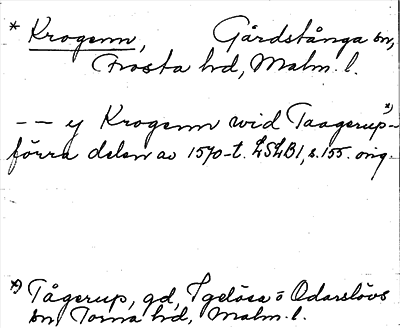 * Krogenn, Gårdstånga sn,
Frosta hd, Malm. l.
-- y Krogenn wid Taagerup *)--
förra delen av 1570-t. LSLB1, s. 155. orig.
*) Tågerup, gd, Igelösa o Odarslövs
sn, Torna hd, Malm. l.